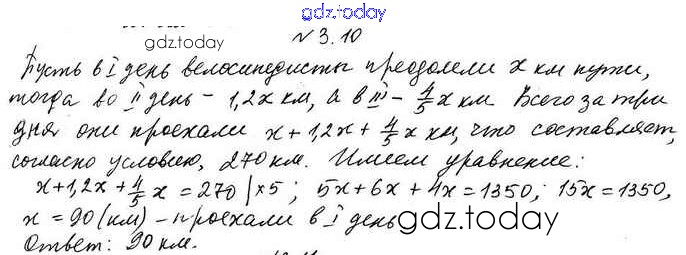 gdz.today
gdz.today
№ 3.10
Пусть в I день велосипедисты преодолели x км пути,
тогда во II день – 1,2x км, а в III – 4/5 x км. Всего за три
дня они проехали x + 1,2x + 4/5 x км, что составляет,
согласно условию, 270 км. Имеем уравнение:
x + 1,2x + 4/5 x = 270 | ×5 ; 5x + 6x + 4x = 1350; 15x = 1350,
x = 90 (км) – проехали в I день
gdz.today
Ответ: 90 км.